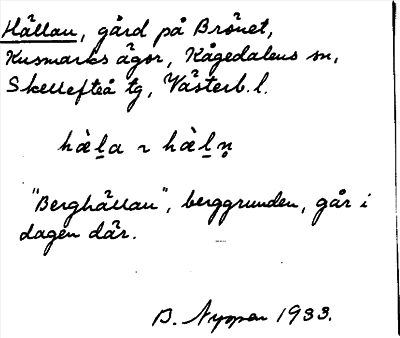 Hällan, gård på Brönet,
Kusmarks ägor, Kågedalens sn,
Skellefteå tg, Västerb. l.
hàl̲a ~ hàl̲n̥
"Berghällan", berggrunden, går i
dagen där.
B. Nyman 1933.